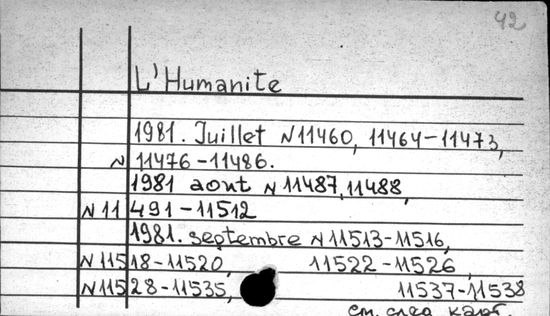 42
L'Humanite
1981. Juillet N11460, 11464-11473,
N 11476-11486.
1981 aout N 11487, 11488,
N 11 491-11512
1981. septembre N 11513-11516,
N 11518-11520, 11522-11526,
N 11528-11535, 11537-11538
см. след карт.